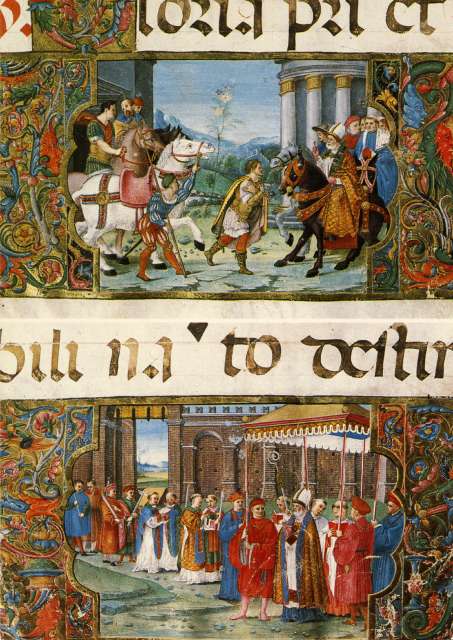 loria pri et
bili na to destin